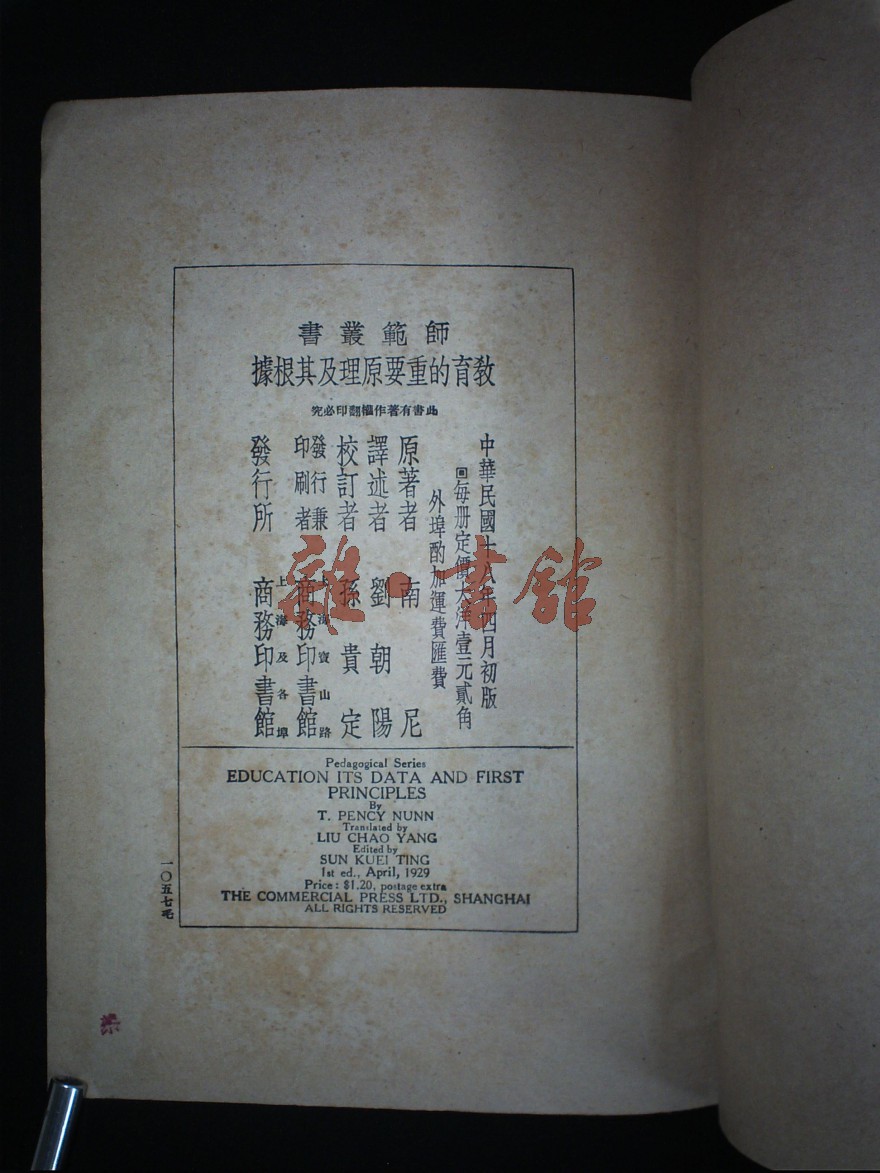 師範叢書
教育的重要原理及其根據
此書有著作權翻印必究
中華民國十八年四月初版
回每册定價大洋壹元貳角
外埠酌加運費匯費
原著者 南尼
譯述者 劉朝陽
校訂者 孫貴定
發行兼印刷者 上海寶山路 商務印書館
發行所 上海及各埠 商務印書館
雜·書館
Pedagogical Series
EDUCATION ITS DATA AND FIRST
PRINCIPLES
By
T. PENCY NUNN
Translated by
LIU CHAO YANG
Edited by
SUN KUEI TING
1st ed., April, 1929
Price: $1.20, postage extra
THE COMMERCIAL PRESS LTD., SHANGHAI
ALL RIGHTS RESERVED
一〇五七毛